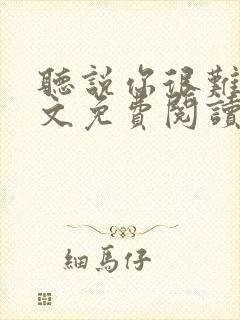 聽說你很難
文免費閱讀
細馬仔